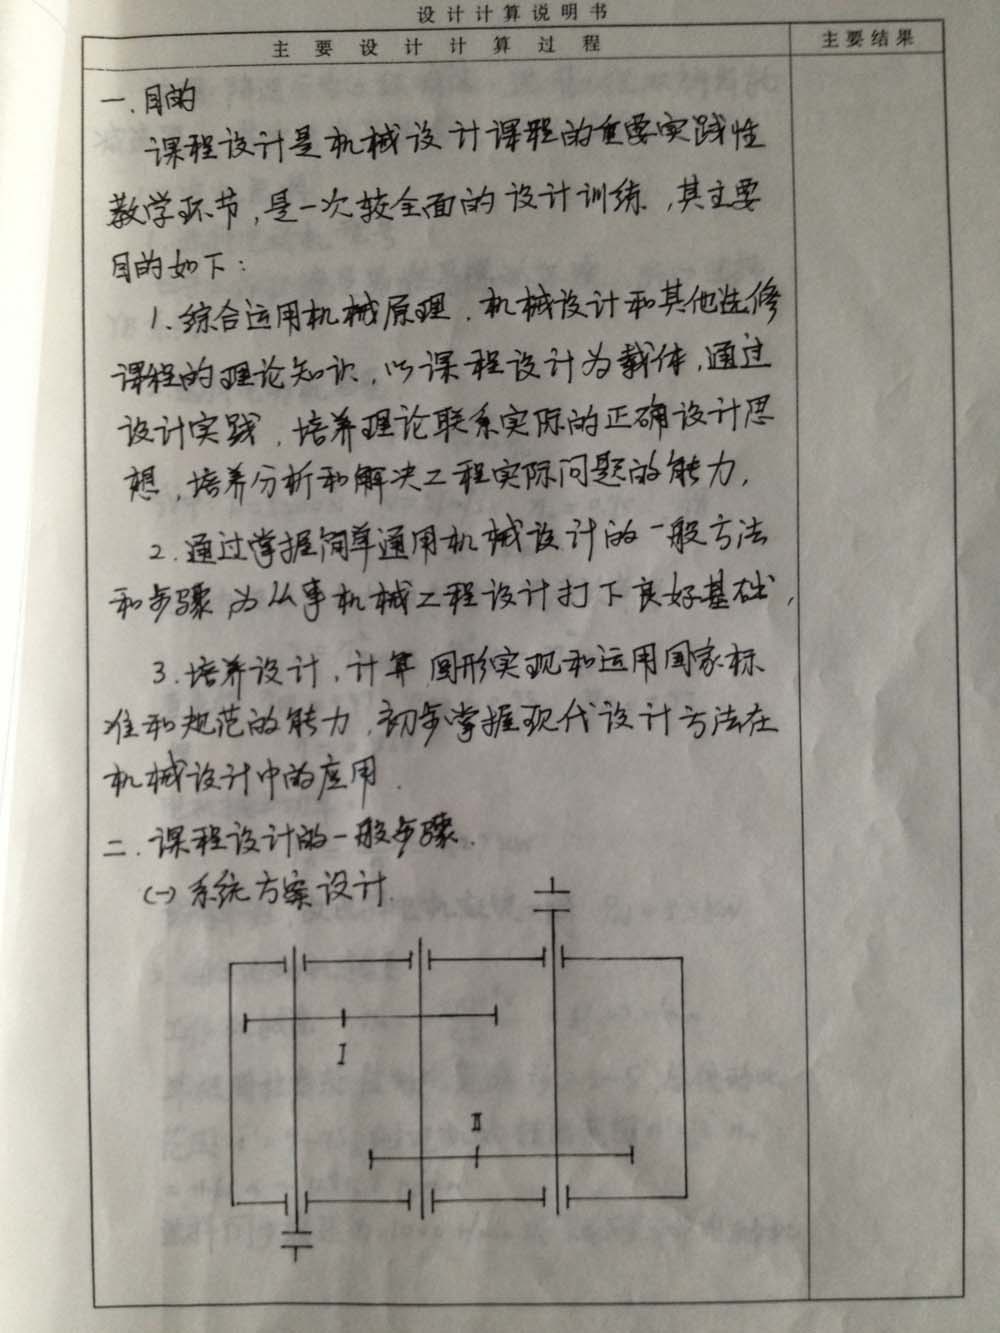 设计计算说明书
主要设计计算过程
主要结果
一.目的
课程设计是机械设计课程的重要实践性
教学环节,是一次较全面的设计训练,其主要
目的如下:
1.综合运用机械原理.机械设计和其他选修
课程的理论知识,以课程设计为载体,通过
设计实践,培养理论联系实际的正确设计思
想,培养分析和解决工程实际问题的能力,
2.通过掌握简单通用机械设计的一般方法
和步骤,为从事机械工程设计打下良好基础,
3.培养设计,计算,图形实现和运用国家标
准和规范的能力,初步掌握现代设计方法在
机械设计中的应用.
二.课程设计的一般步骤.
(一)系统方案设计.
I
II